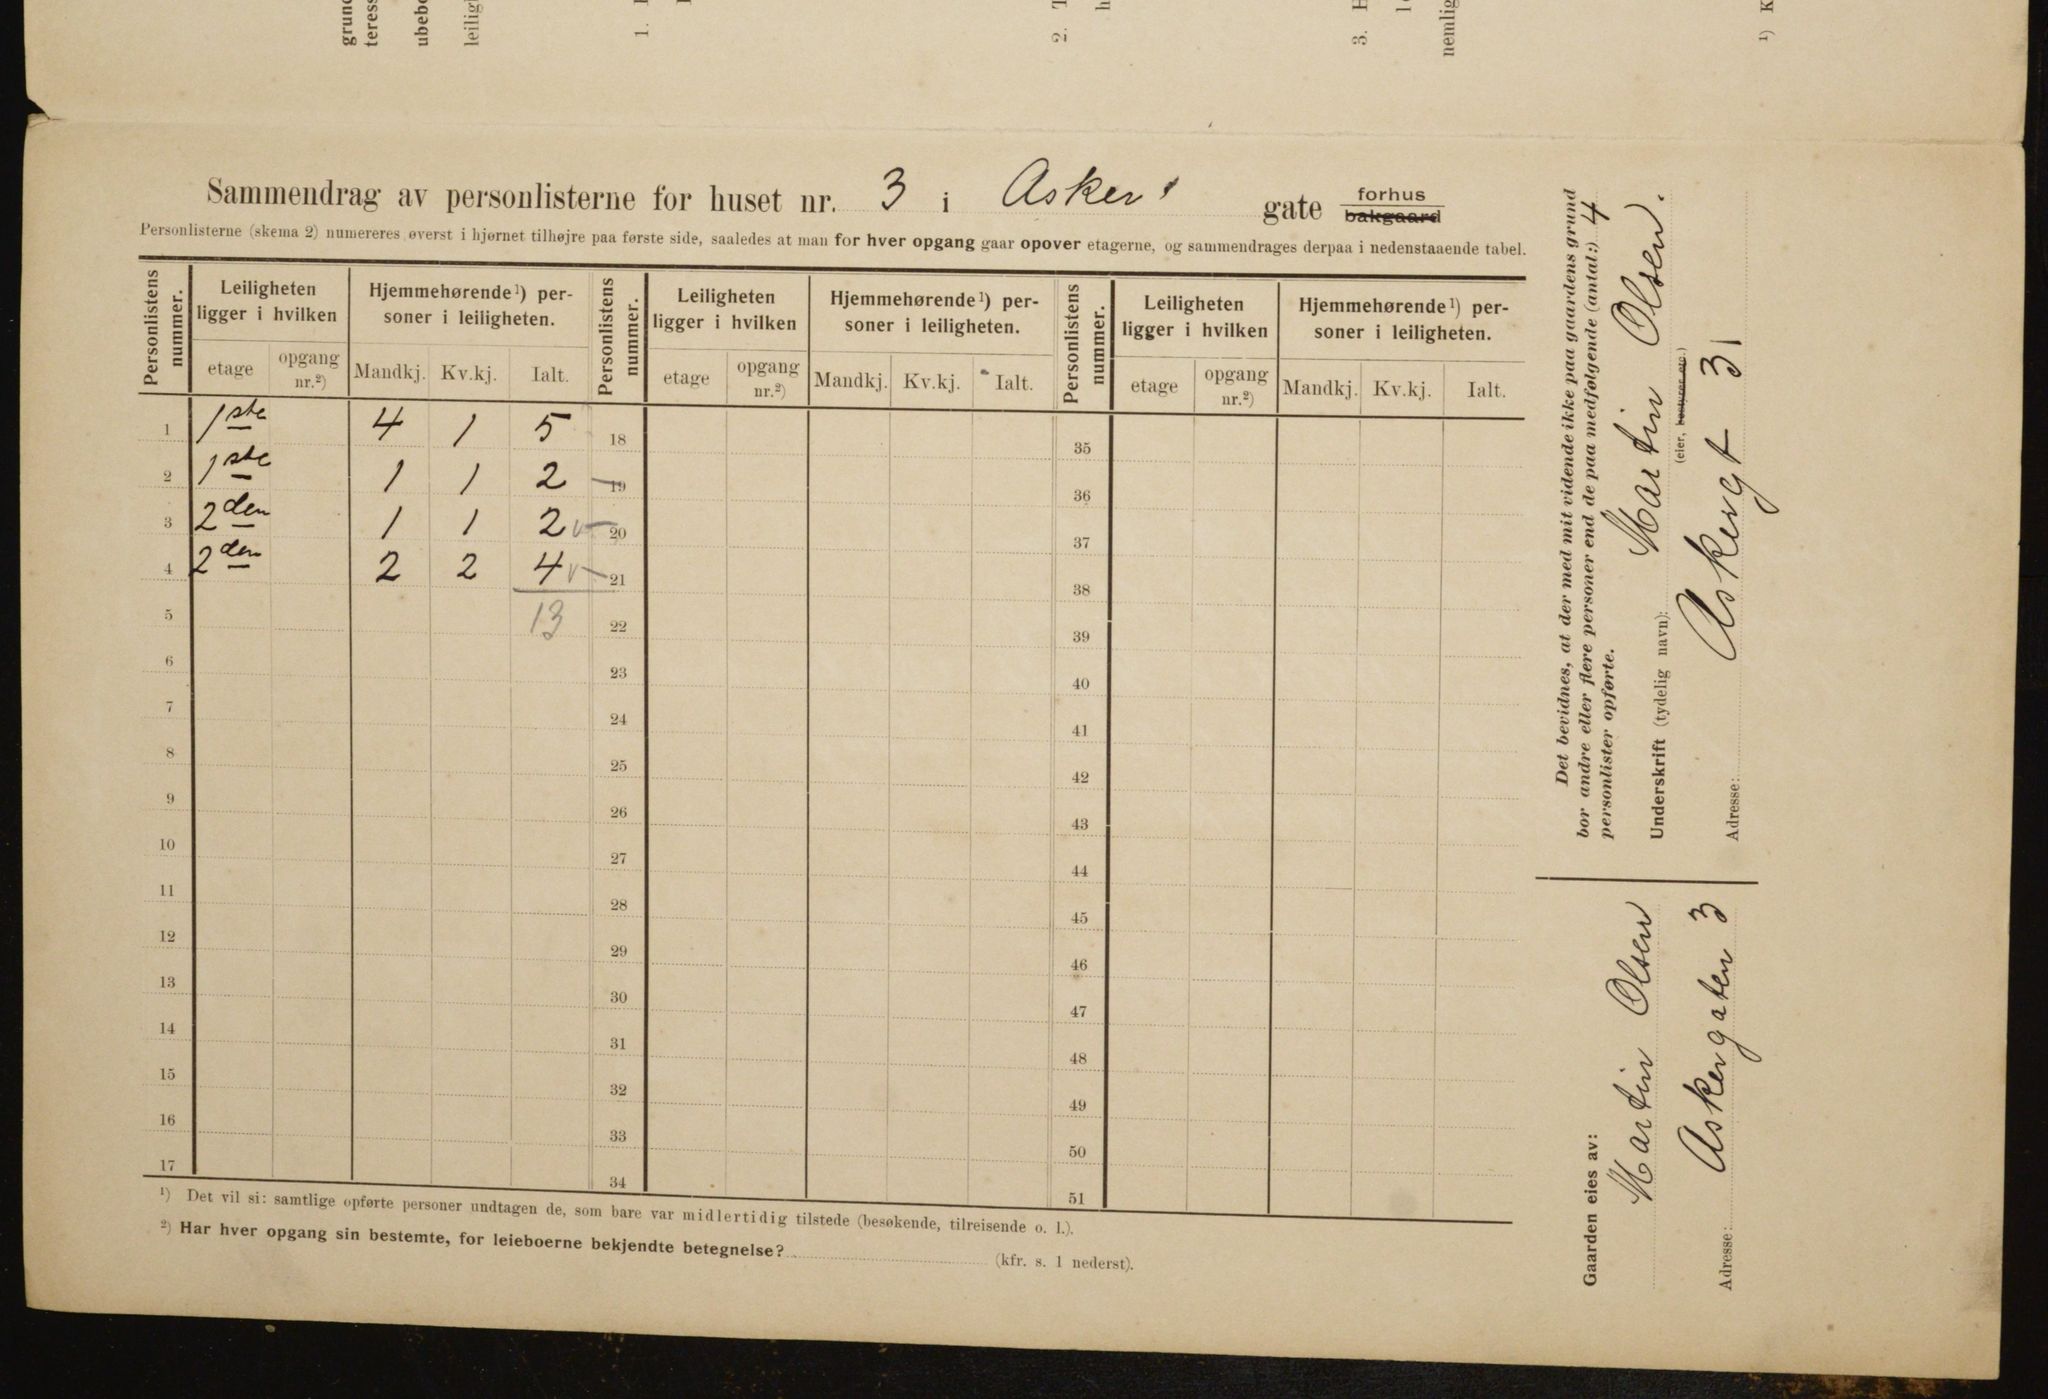 Sammendrag av personlisterne for huset nr. 3 i Asker gate forhus bakgaard
Personlisterne (skema 2) numereres øverst i hjørnet tilhøjre paa første side, saaledes at man for hver opgang gaar opover etagerne, og sammendrages derpaa i nedenstaaende tabel.
Personlistens nummer.
Leiligheten ligger i hvilken
Hjemmehørende¹) personer i leiligheten.
Personlistens nummer.
Leiligheten ligger i hvilken
Hjemmehørende¹) personer i leiligheten.
Personlistens nummer.
Leiligheten ligger i hvilken
Hjemmehørende¹) personer i leiligheten.
etage opgang nr.²) Mandkj. Kv.kj. Ialt. etage opgang nr.²) Mandkj. Kv.kj. Ialt. etage opgang nr.²) Mandkj. Kv.kj. Ialt.
1 1ste 4 1 5 18 35
2 1ste 1 1 2 19 36
3 2den 1 1 2 20 37
4 2den 2 2 4 21 38
5 13 22 39
6 23 40
7 24 41
8 25 42
9 26 43
10 27 44
11 28 45
12 29 46
13 30 47
14 31 48
15 32 49
16 33 50
17 34 51
¹) Det vil si: samtlige opførte personer undtagen de, som bare var midlertidig tilstede (besøkende, tilreisende o. l.).
²) Har hver opgang sin bestemte, for leieboerne bekjendte betegnelse? (kfr. s. 1 nederst).
Det bevidnes, at der med mit vidende ikke paa gaardens grund
bor andre eller flere personer end de paa medfølgende (antal:) 4
personlister opførte.
Underskrift (tydelig navn): Martin Olsen.
(eier, bestyrer etc.)
Adresse: Askergt 3
Gaarden eies av:
Martin Olsen
Adresse: Askergaten 3